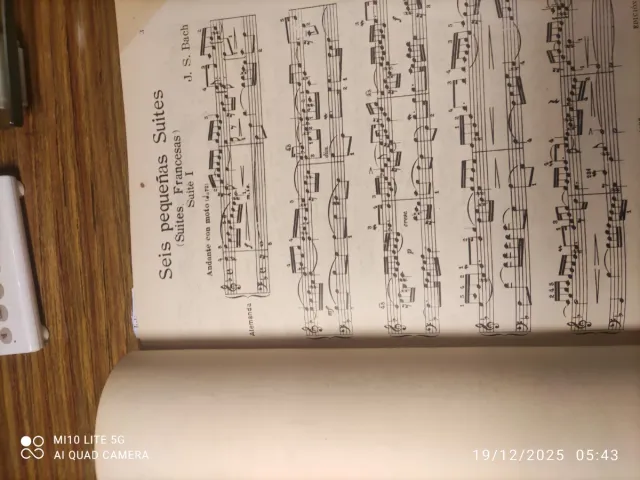 Seis pequeñas Suites
(Suites Francesas)
Suite I
J. S. Bach
Andante con moto
Alemanda
MI10 LITE 5G
AI QUAD CAMERA
19/12/2025 05:43